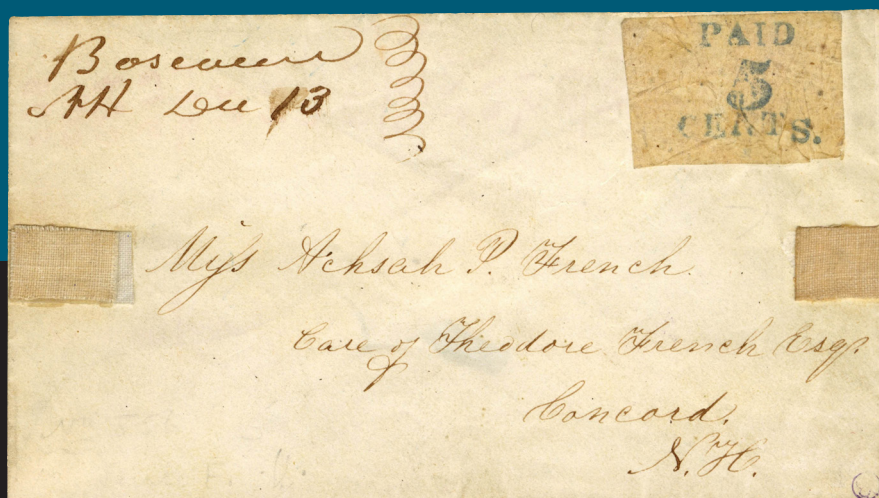 Boscawen
NH Dec 13
PAID
5
CENTS.
Miss Achsah P. French.
Care of Theodore French Esqr.
Concord.
N.H.